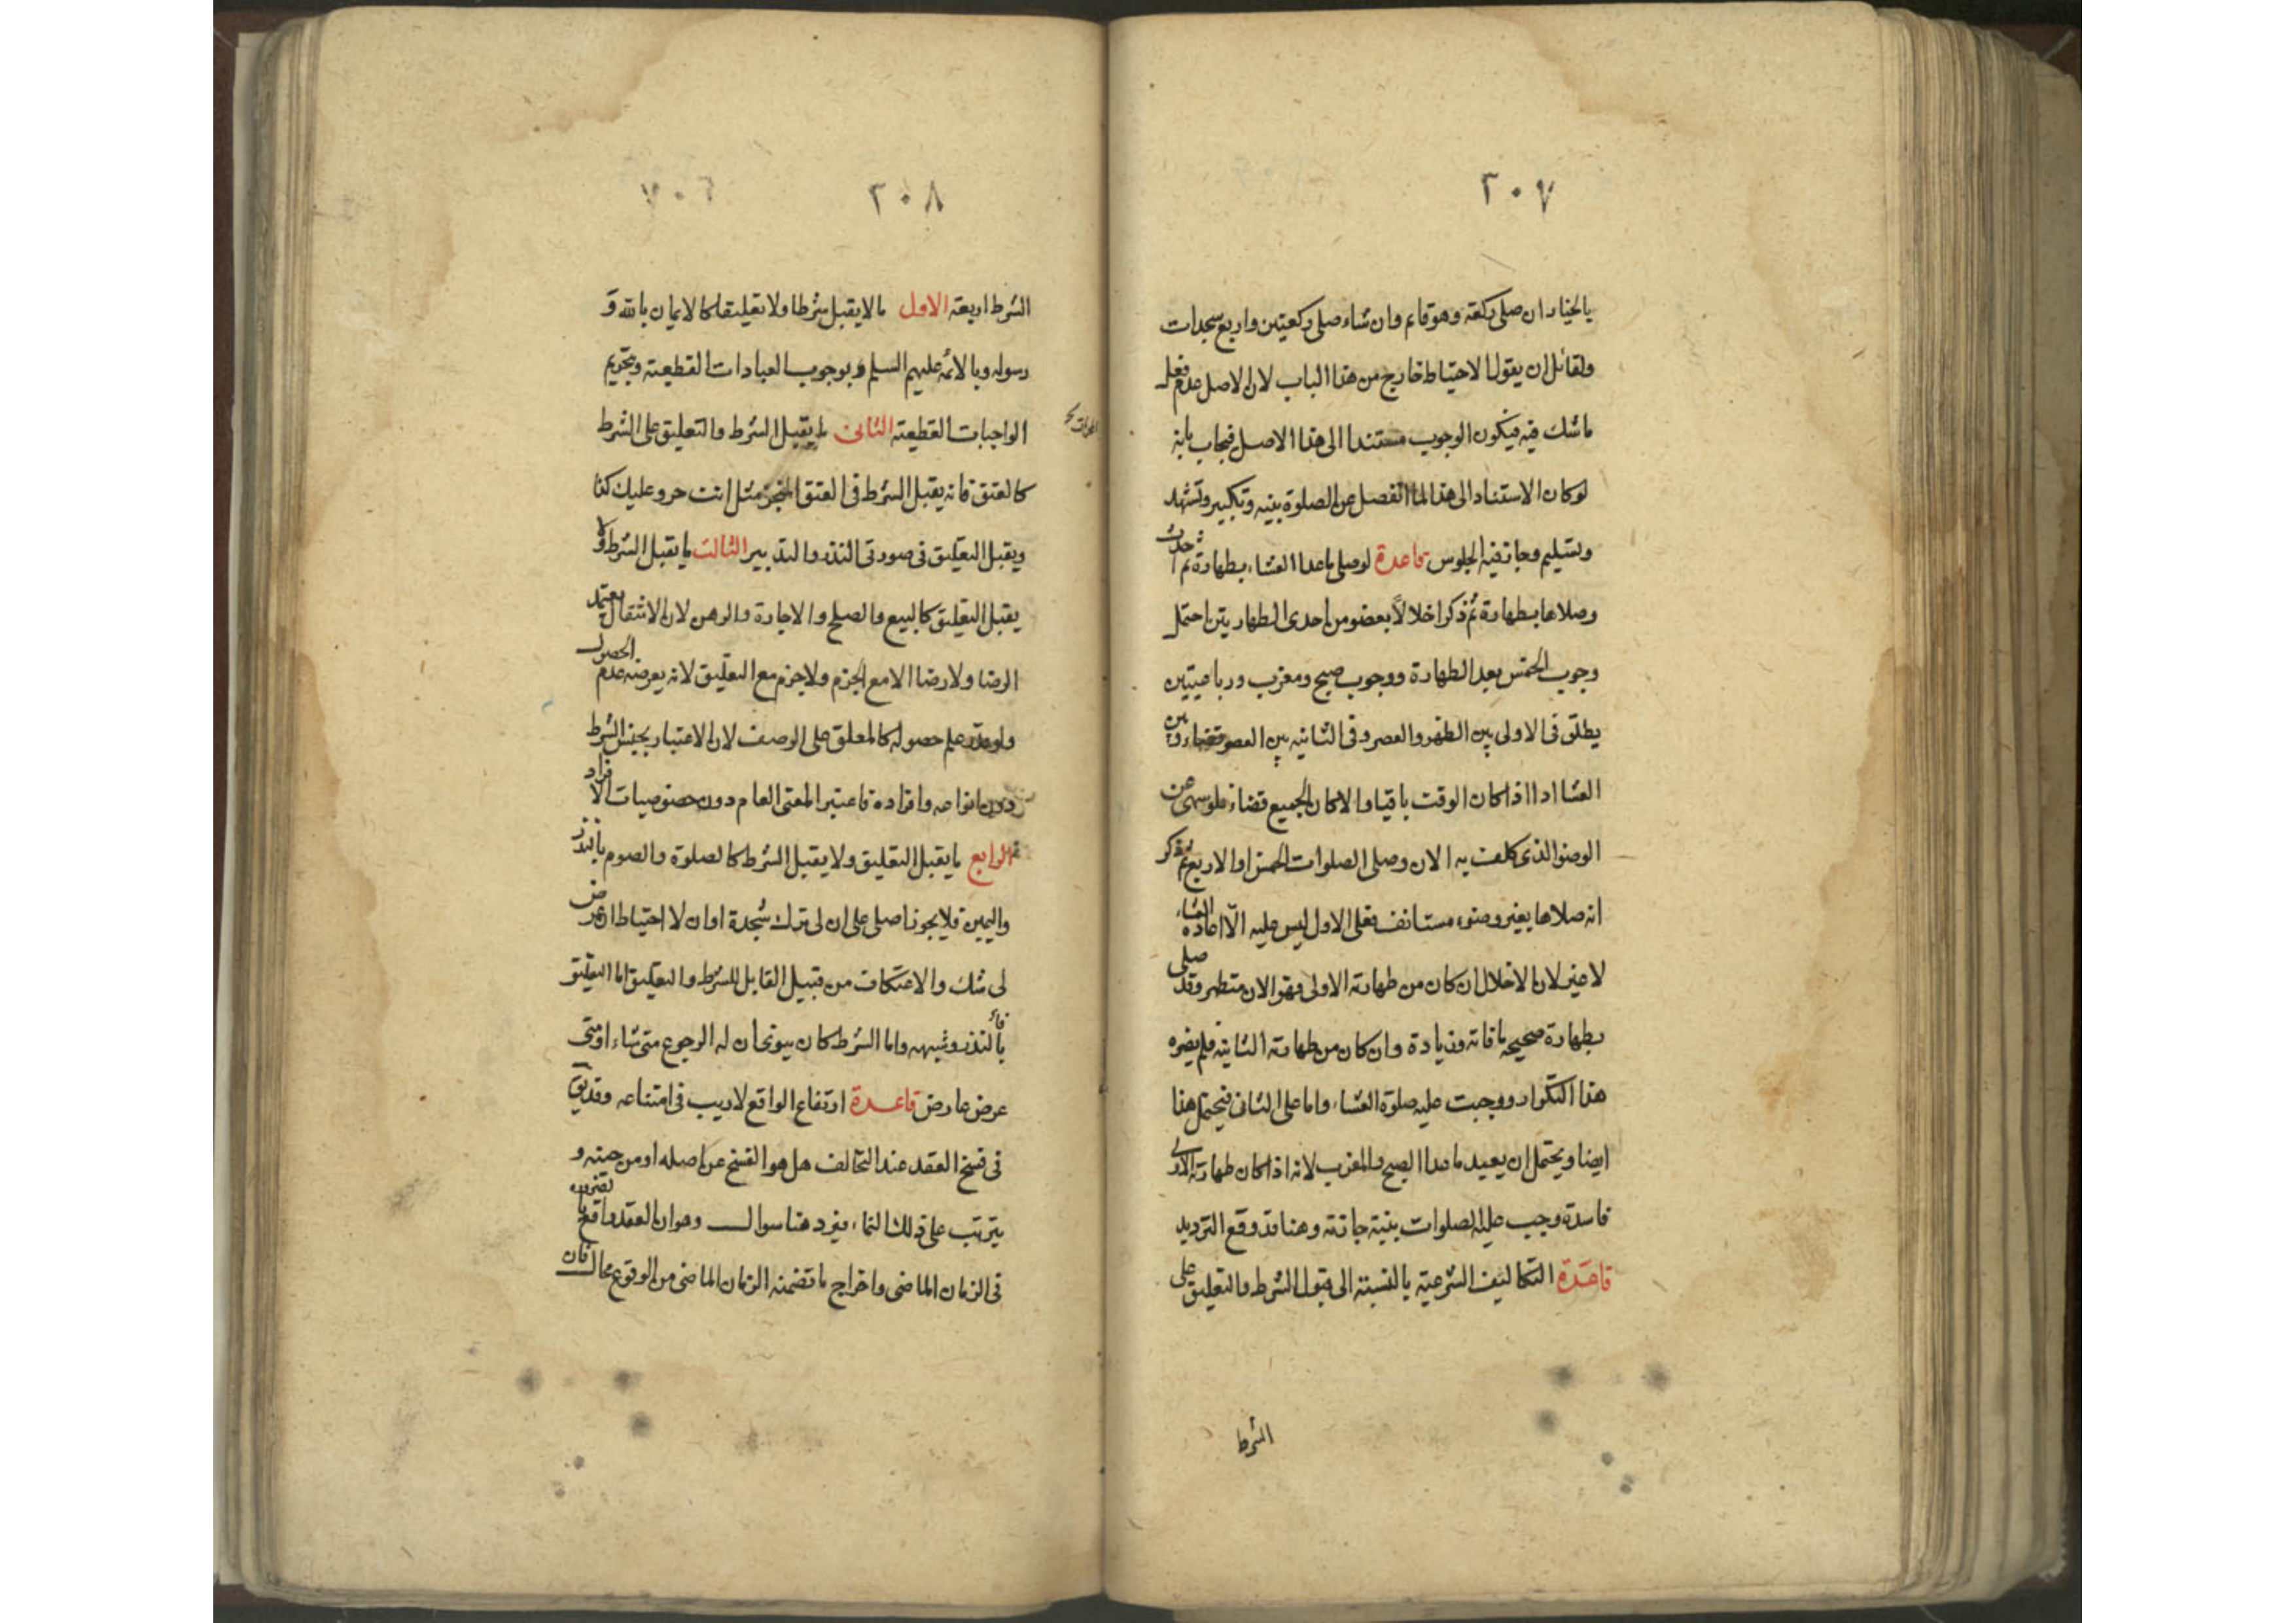 ٢٠٧
بالخيار ان صلى ركعة وهو قايم وان شاء صلى ركعتين واربع سجدات
ولقائل ان يقول الاحتياط خارج من هذا الباب لان الاصل عدم فعل
ما شك فيه فيكون الوجوب مستندا الى هذا الاصل فيجاب بانه
لو كان الاستناد الى هذا لما انفصل عن الصلوة بنيه وتكبير وتشهد
وتسليم وجاز فيه الجلوس قاعدة لو صلى ماعدا العشاء بطهارة ثم احدث
وصلاها بطهارة ثم ذكر اخلالاً بعضو من احدى الطهارتين احتمل
وجوب الخمس بعد الطهارة ووجوب صبح ومغرب ورباعيتين
يطلق فى الاولى بين الظهر والعصر وفى الثانيه بين العصر وبين
العشا ادا اذا كان الوقت باقيا والا كان الجميع قضاء فلو سهى عن
الوضو الذى كلف به الان وصلى الصلوات الخمس او الاربع ثم ذكر
انه صلاها بغير وضوء مستانف فعلى الاول ليس عليه الّا اعادة العشاء
لا غير لان الاخلال ان كان من طهارته الاولى فهو الان متطهر وقد صلى
بطهارة صحيحه ما فاته وزيادة وان كان من طهارته الثانيه فلم يضره
هذا التكرار ووجبت عليه صلوة العشاء واما على الثانى فيحتمل هنا
ايضا ويحتمل ان يعيد ماعدا الصبح والمغرب لانه اذا كان طهارته الاولى
فاسدة وجب عليه الصلوات بنية جازمة وهنا قد وقع الترديد
قاعدة التكاليف الشرعية بالنسبة الى قبول الشرط والتعليق على
الشرط
٣٠٨
الشرط اربعة الاول ما لا يقبل شرطا ولا تعليقا كالايمان بالله و
رسوله وبالائمه عليهم السلم وبوجوب العبادات القطعية وتحريم
الواجبات القطعية الثانى ما يقبل الشرط والتعليق على الشرط
كالعتق فانه يقبل الشرط فى العتق المنجز مثل انت حر وعليك كذا
ويقبل التعليق فى صورتى النذر والتدبير الثالث ما يقبل الشرط ولا
يقبل التعليق كالبيع والصلح والاجارة والرهن لان الانتقال يعتمد
الرضا ولا رضا الا مع الجزم ولا جزم مع التعليق لانه يعرضه عدم الحصول
ولو قدر علم حصوله كالمعلق على الوصف لان الاعتبار بجنس الشرط
دون انواعه وافراده فاعتبر المعنى العام دون خصوصيات الافراد
الرابع ما يقبل التعليق ولا يقبل الشرط كالصلوة والصوم بالنذر
واليمين فلا يجوز اصلى على ان لى ترك سجدة او ان لا احتياط ان عرض
لى شك والاعتكاف من قبيل القابل للشرط والتعليق اما التعليق
فبالنذر وشبهه واما الشرط كان ينوى ان له الرجوع متى شاء او متى
عرض عارض قاعدة ارتفاع الواقع لاريب فى امتناعه وقد يقع
فى فسخ العقد عند التحالف هل هو الفسخ عن اصله او من حينه و
يترتب على ذلك النماء فيرد هنا سوال وهو ان العقد واقع بالضرورة
فى الزمان الماضى واخراج ما تضمنه الزمان الماضى من الوقوع محال فان